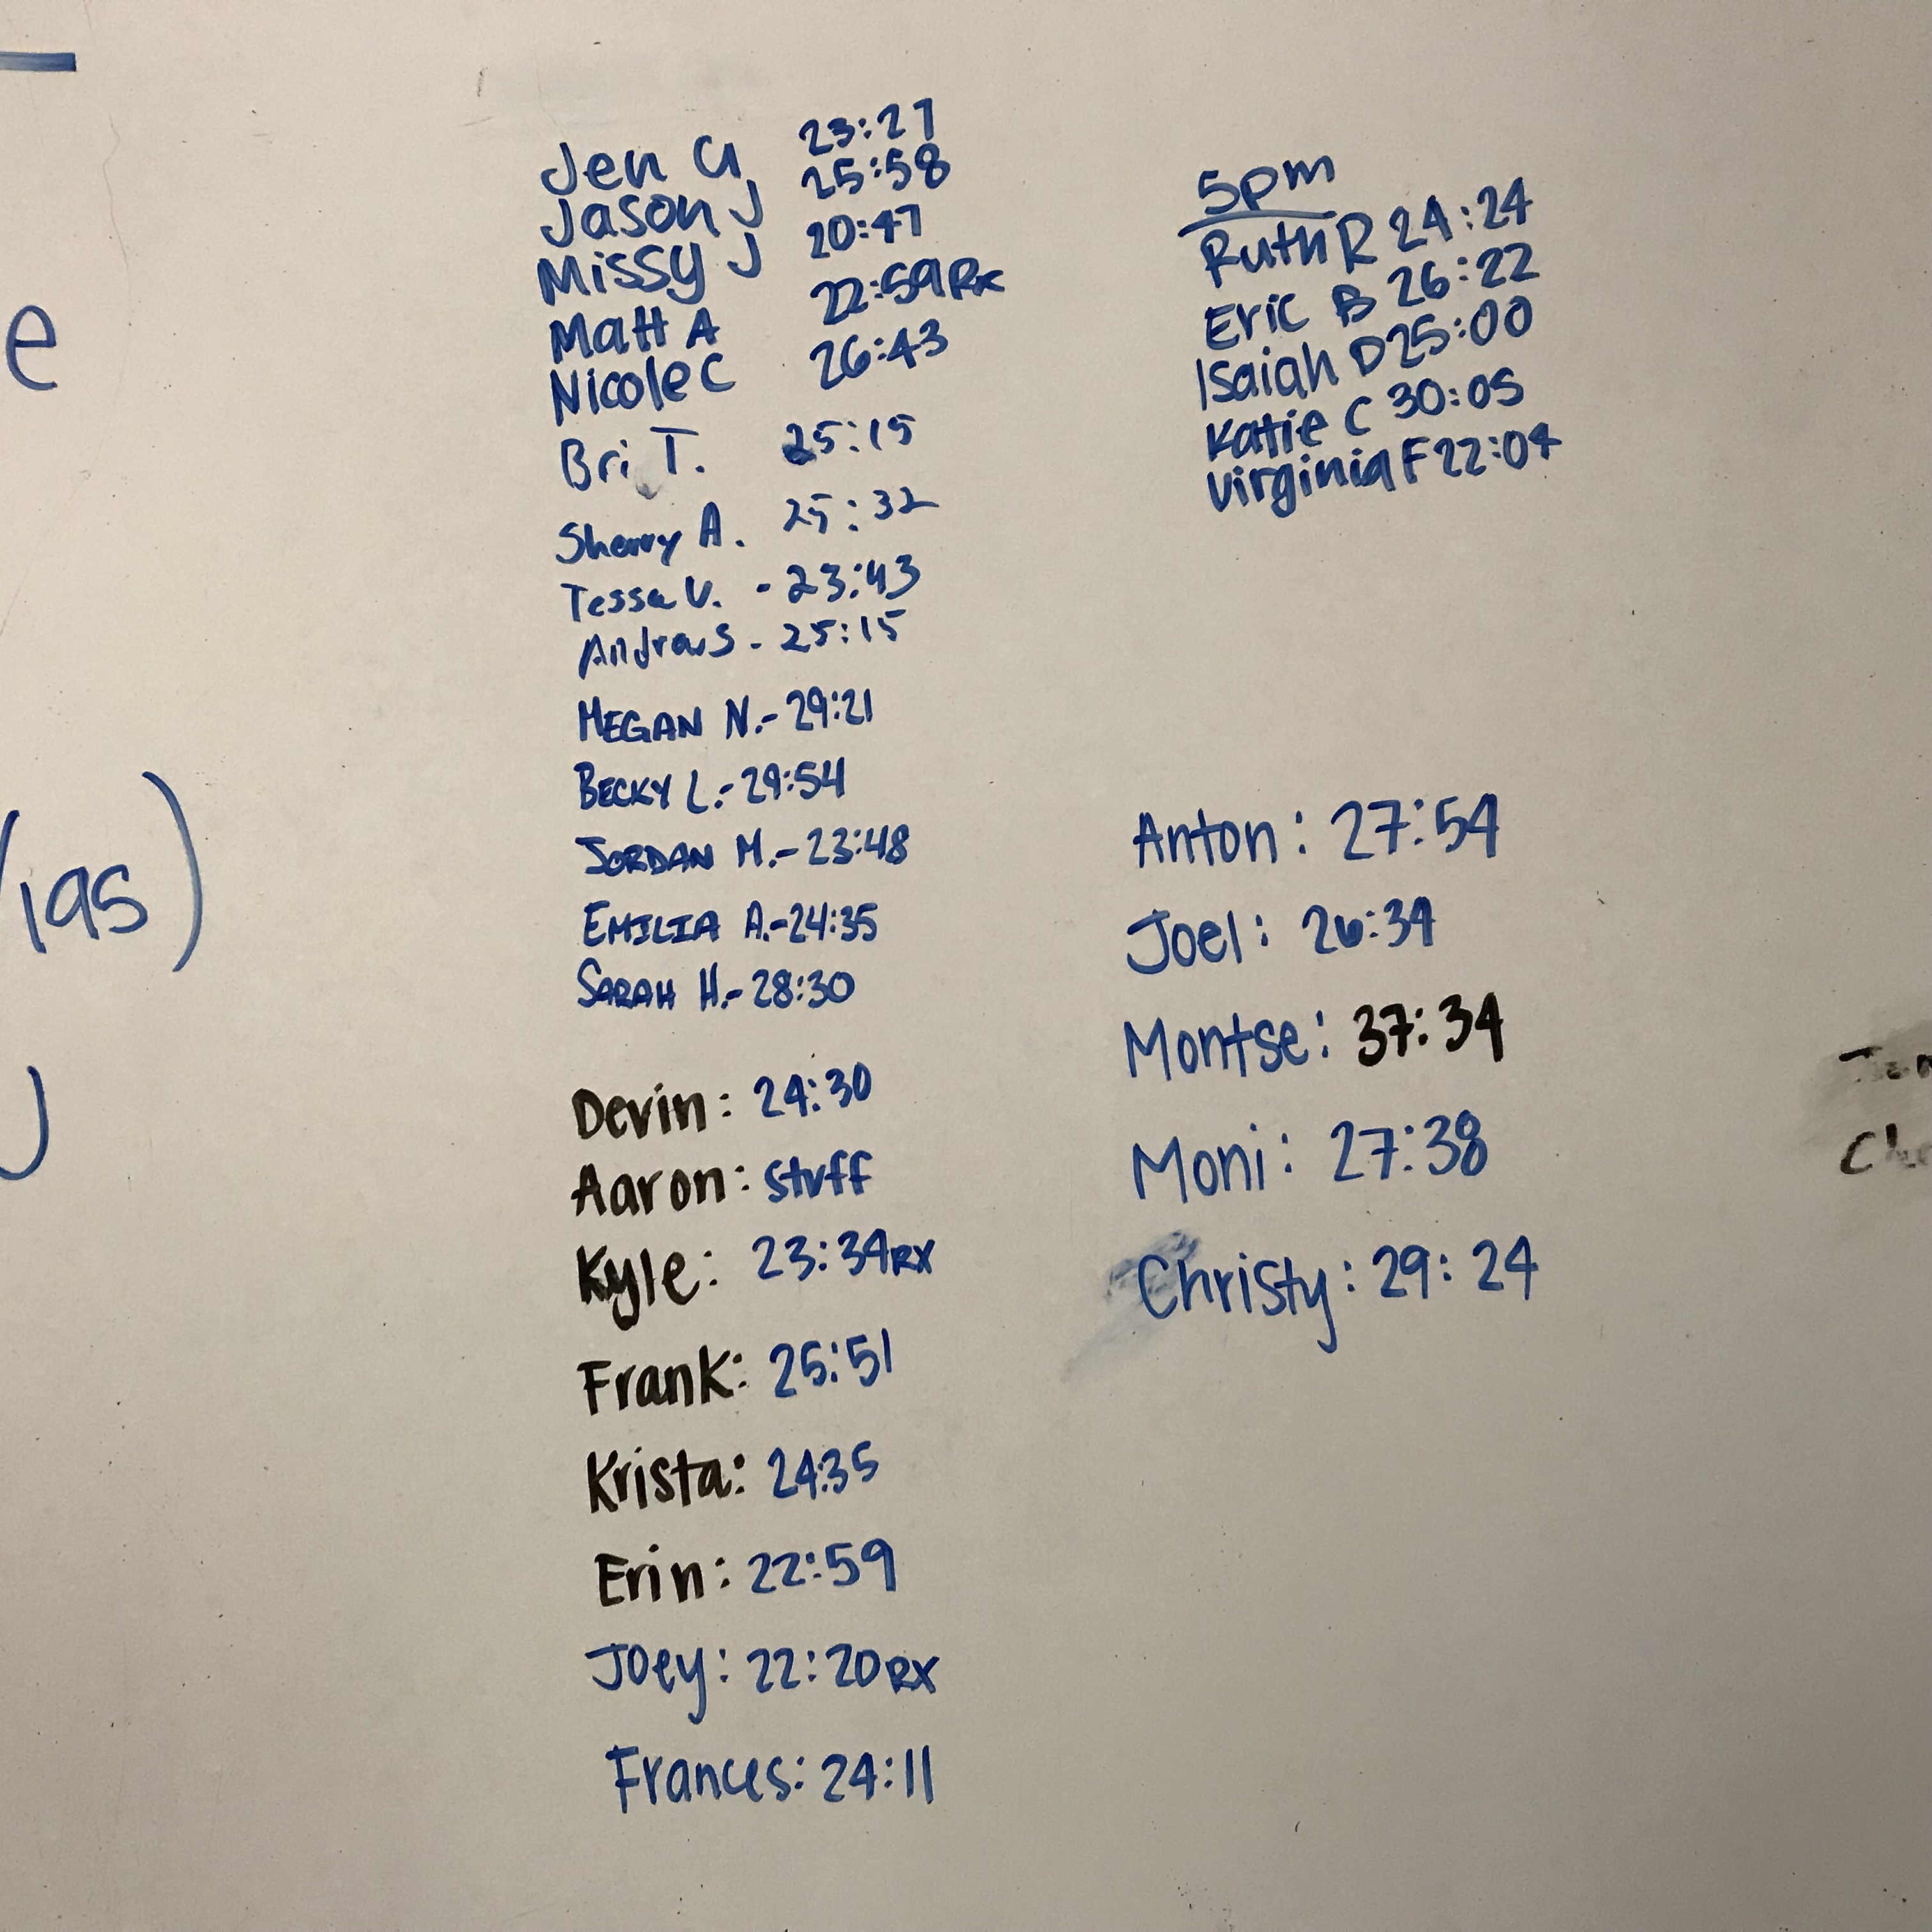 e
ias)
J
Jen G 23:27
Jason J 25:58
Missy J 20:47
Matt A 22:59 Rx
Nicole C 26:43
Bri T. 25:15
Sherry A. 25:32
Tessa V. - 23:43
Andrew S - 25:15
MEGAN N.- 29:21
BECKY L.- 29:54
JORDAN M.- 23:48
EMILIA A.- 24:35
SARAH H.- 28:30
Devin: 24:30
Aaron: stuff
Kyle: 23:34 RX
Frank: 25:51
Krista: 24:35
Erin: 22:59
Joey: 22:20 RX
Frances: 24:11
5pm
Ruth R 24:24
Eric B 26:22
Isaiah D 25:00
Katie C 30:05
Virginia F 22:04
Anton: 27:54
Joel: 26:34
Montse: 37:34
Moni: 27:38
Christy: 29:24